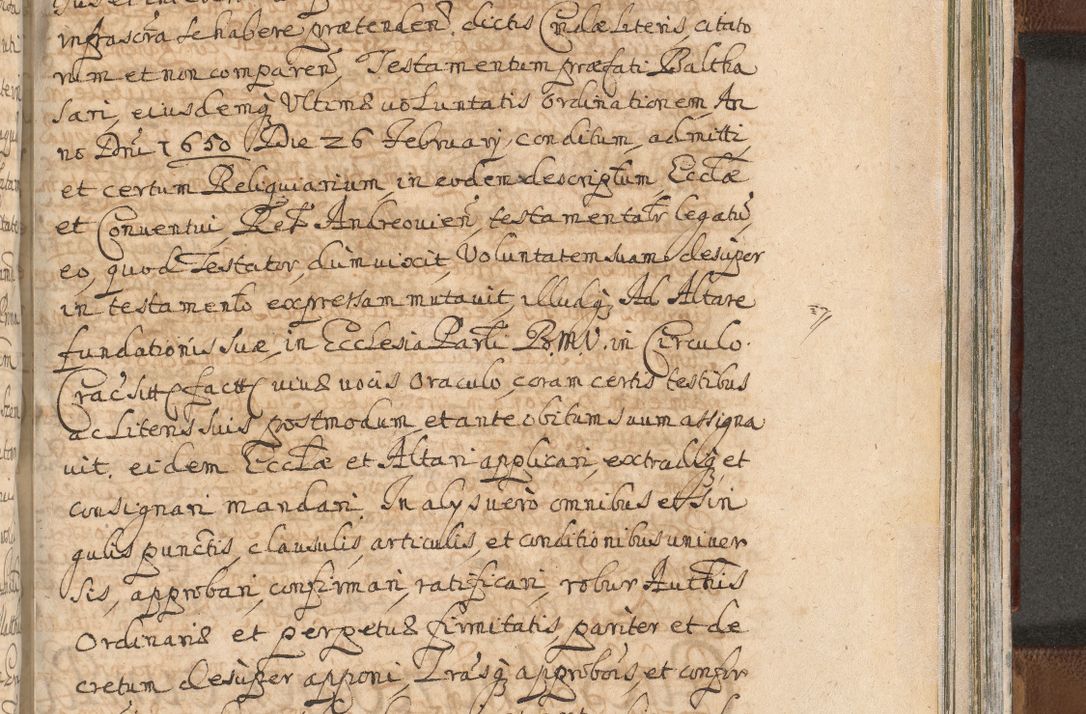 infrascra se habere prætenden. dictis Cridæ literis, citato
rum et non comparen, Testamentum præfati Baltha
sari, eiusdemq Ultimæ voluntatis ordinationem, An
no Dni 1650 Die 26 February, conditum, admitti,
et certum Reliquiarium, in eodem descriptum, Ecclæ
et Conventui, Andreouien, testamentalr legatu,
eo, quod Testator, dum vixit, Voluntatem suam desuper
in testamento expressam mutavit, illudq Ad Altare
fundationis suæ, in Ecclesia B.M.V. in Circulo.
vivæ vocis oraculo, coram certis testibus
ac Literis suis postmodum, et ante obitum suum assigna
vit, eidem Ecclæ et Altari applicari, extradiq et
consignari mandari. In alys vero omnibus et sin
gulis punctis, clausulis, articulis, et conditionibus univer
sis, approbari, confirmari, ratificari, robur Authtis
Ordinariæ et perpetuæ firmitatis pariter et de
cretum desuper apponi, approbois, et confir